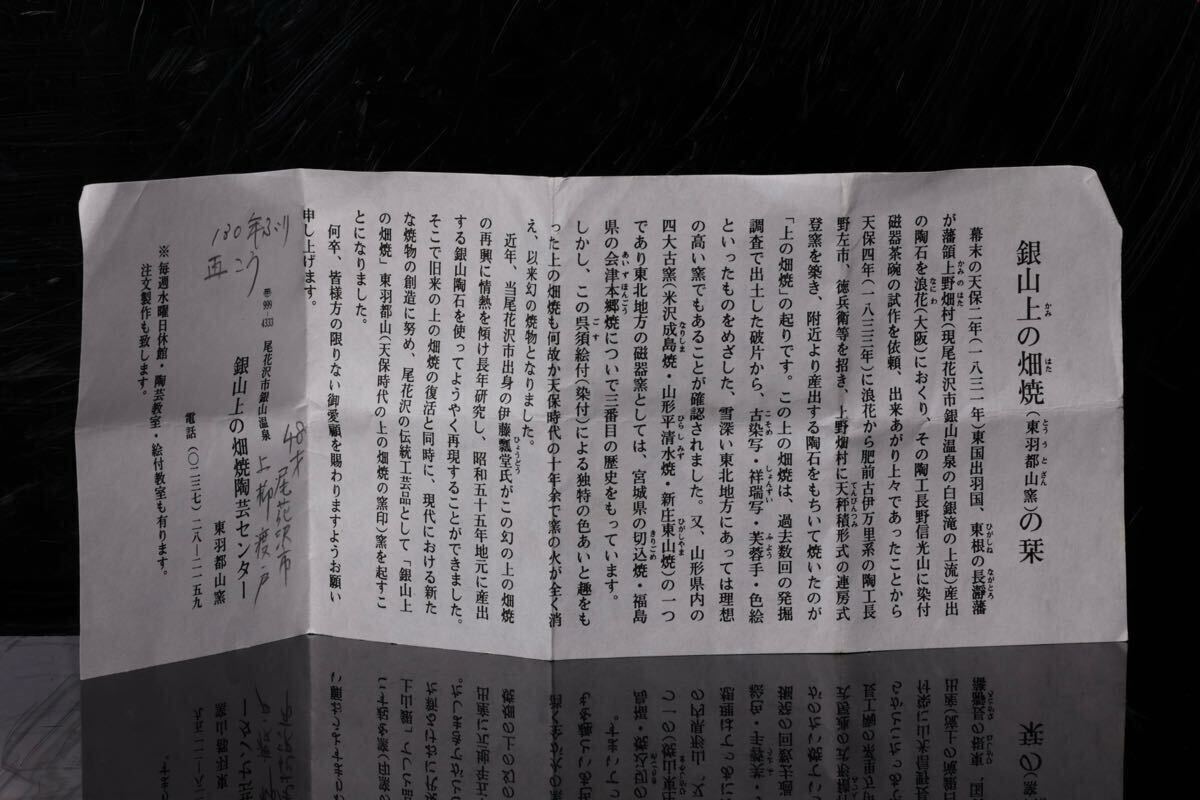 銀山上の畑焼(東羽都山窯)の栞
幕末の天保二年(一八三一年)東国出羽国、東根の長瀞藩
が藩領上野畑村(現尾花沢市銀山温泉の白銀滝の上流)産出
の陶石を浪花(大阪)におくり、その陶工長野信光山に染付
磁器茶碗の試作を依頼、出来あがり上々であったことから
天保四年(一八三三年)に浪花から肥前古伊万里系の陶工長
野左市、徳兵衛等を招き、上野畑村に天秤積形式の連房式
登窯を築き、附近より産出する陶石をもちいて焼いたのが
「上の畑焼」の起りです。この上の畑焼は、過去数回の発掘
調査で出土した破片から、古染写・祥瑞写・芙蓉手・色絵
といったものをめざした、雪深い東北地方にあっては理想
の高い窯でもあることが確認されました。又、山形県内の
四大古窯(米沢成島焼・山形平清水焼・新庄東山焼)の一つ
であり東北地方の磁器窯としては、宮城県の切込焼・福島
県の会津本郷焼についで三番目の歴史をもっています。
しかし、この呉須絵付(染付)による独特の色あいと趣をも
った上の畑焼も何故か天保時代の十年余で窯の火が全く消
え、以来幻の焼物となりました。
近年、当尾花沢市出身の伊藤瓢堂氏がこの幻の上の畑焼
の再興に情熱を傾け長年研究し、昭和五十五年地元に産出
する銀山陶石を使ってようやく再現することができました。
そこで旧来の上の畑焼の復活と同時に、現代における新た
な焼物の創造に努め、尾花沢の伝統工芸品として「銀山上
の畑焼」東羽都山(天保時代の上の畑焼の窯印)窯を起すこ
とになりました。
何卒、皆様方の限りない御愛顧を賜わりますようお願い
申し上げます。
48才 尾花沢市
上柳渡戸
〒999-4333 尾花沢市銀山温泉
東羽都山窯
銀山上の畑焼陶芸センター
電話(〇二三七)二八—二一五九
130年ぶり
再こう
※毎週水曜日休館・陶芸教室・絵付教室も有ります。
注文製作も致します。